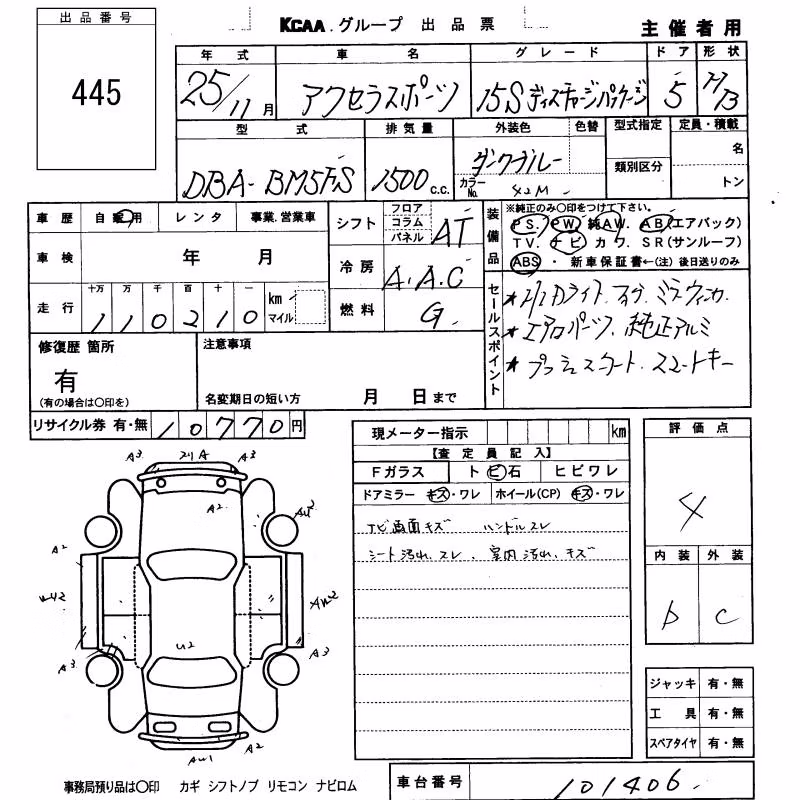 出品番号
445
KCAA.グループ 出品票
主催者用
年式 車名 グレード ドア 形状
25/11月 アクセラスポーツ 15Sディスチャージパッケージ 5 H/B
型式 排気量 外装色 色替 型式指定 定員・積載
DBA-BM5FS 1500c.c. ダークブルー 類別区分 名
カラーNo. 42M トン
車歴 自家用 レンタ 事業.営業車
車検 年 月
走行 十万 万 千 百 十 一 km マイル
110210
シフト フロア コラム パネル AT
冷房 A.A.C
燃料 G.
装備品
※純正のみ○印をつけて下さい。
PS. PW. 純AW. AB(エアバック)
TV. ナビ カワ. SR(サンルーフ)
ABS ・ 新車保証書←(注)後日送りのみ
セールスポイント
★エアロパーツ. 純正アルミ
★プッシュスタート. スマートキー
修復歴 箇所
有
(有の場合は○印を)
注意事項
名変期日の短い方 月 日まで
リサイクル券 有・無 10770円
現メーター指示 km
【査定員記入】
Fガラス トビ石 ヒビワレ
ドアミラー キズ・ワレ ホイール(CP) キズ・ワレ
ナビ画面キズ ハンドルスレ
シート汚れ.スレ、室内汚れ.キズ
評価点
4
内装 外装
D C
ジャッキ 有・無
工具 有・無
スペアタイヤ 有・無
A3 A3
A2
A2
U2
A3 A3
AW1 A2
事務局預り品は○印 カギ シフトノブ リモコン ナビロム
車台番号 101406